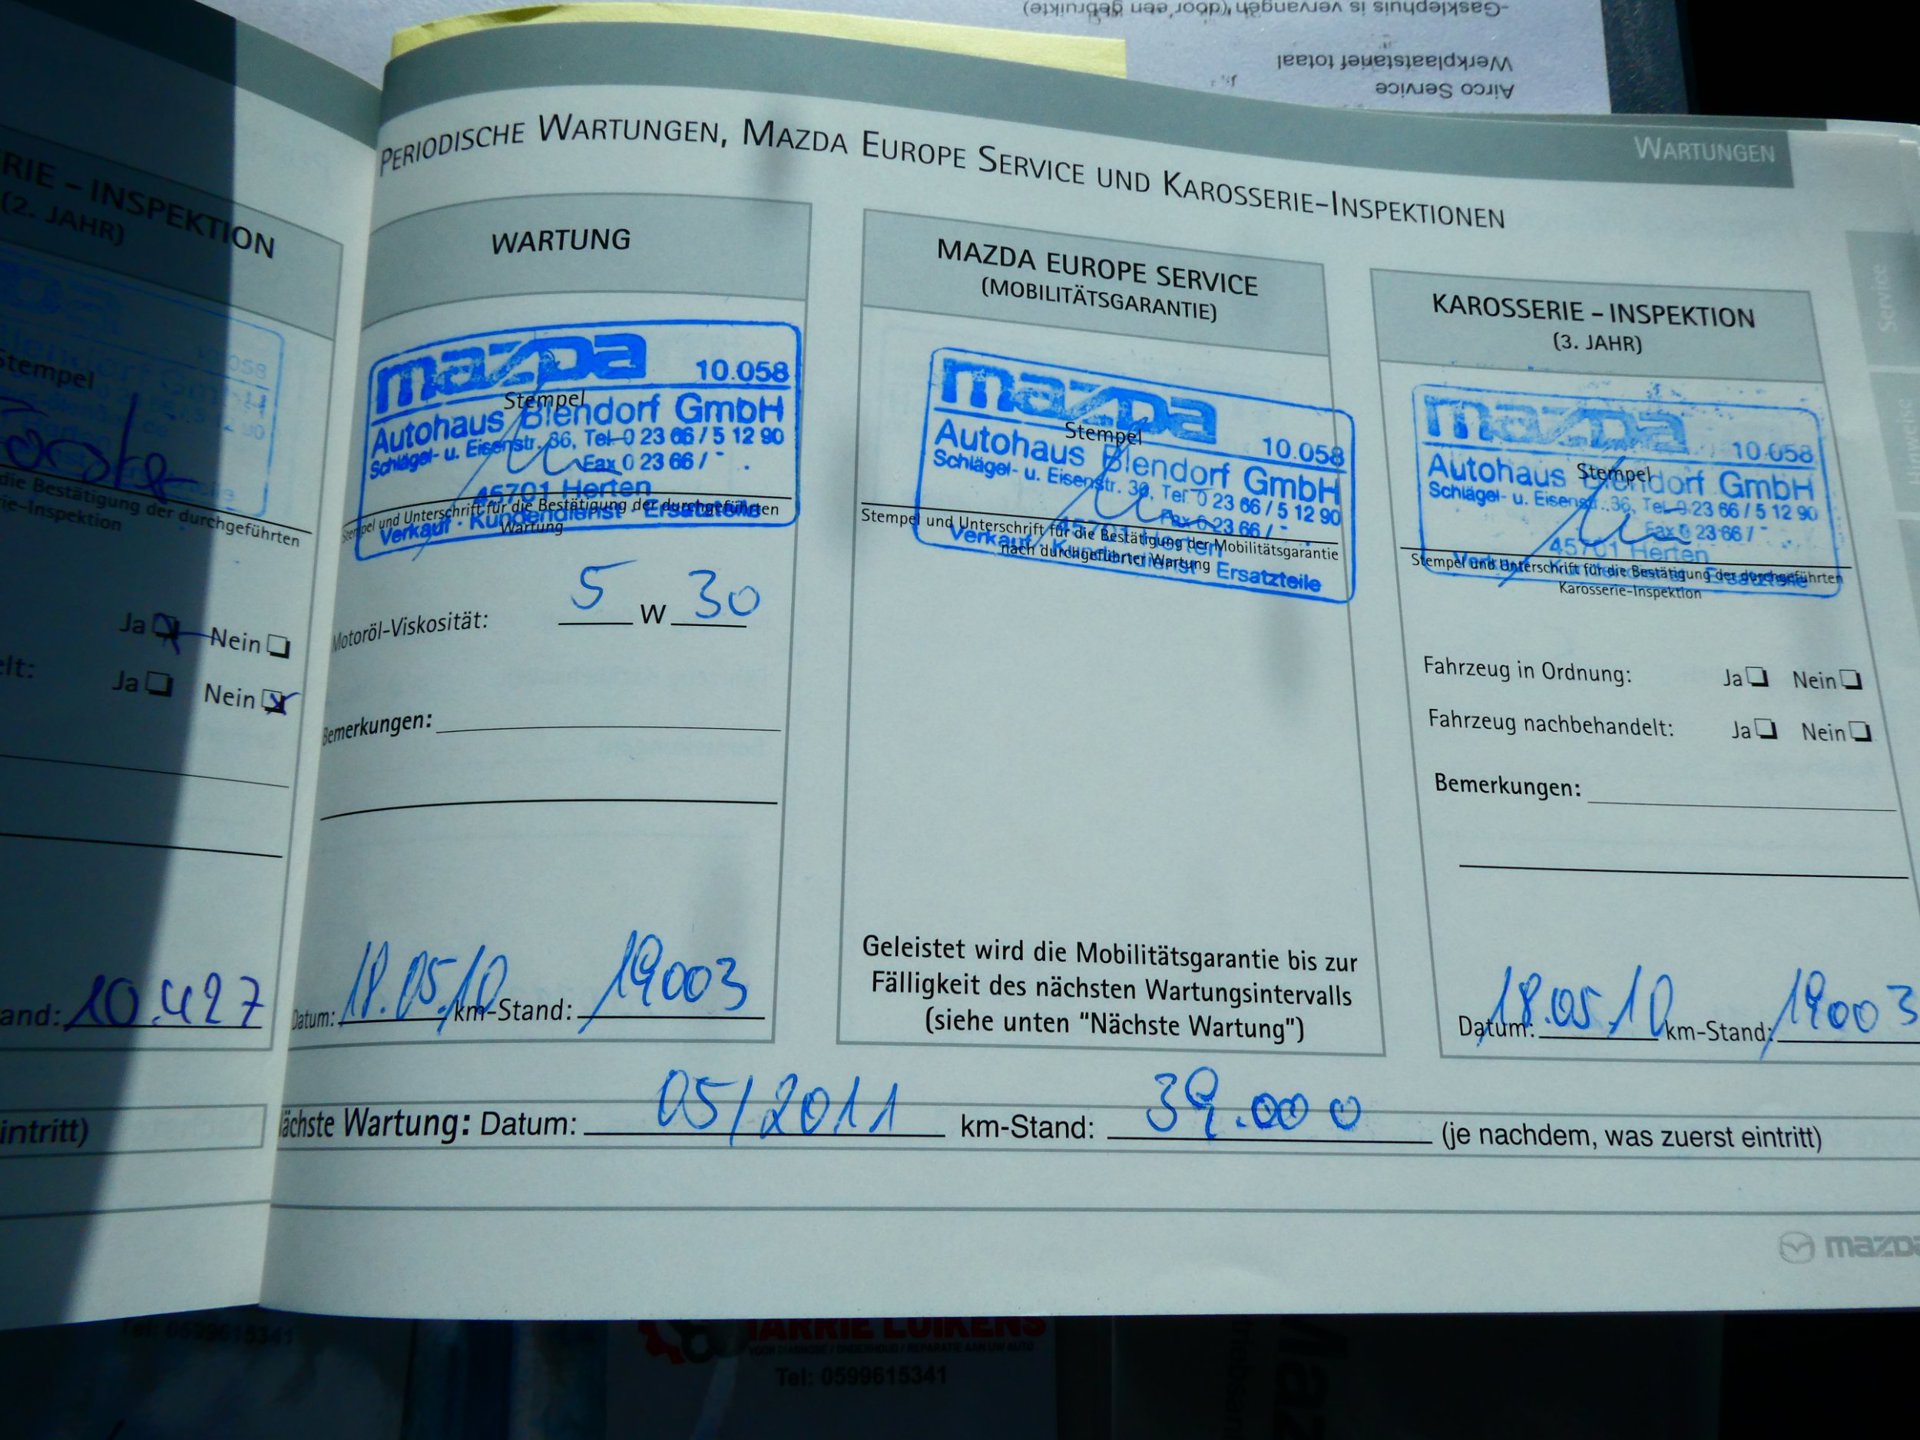 -Gasklephuis is vervangen (door een gebruikte)
Werkplaatstarief totaal
Airco Service
WARTUNGEN
PERIODISCHE WARTUNGEN, MAZDA EUROPE SERVICE UND KAROSSERIE-INSPEKTIONEN
RIE - INSPEKTION
(2. JAHR)
Stempel
die Bestätigung der durchgeführten
ie-Inspektion
Ja Nein
elt: Ja Nein
and: 10.427
intritt)
WARTUNG
mazda 10.058
Stempel
Autohaus Blendorf GmbH
Schlägel- u. Eisenstr. 36, Tel. 0 23 66 / 5 12 90
Fax 0 23 66 /
45701 Herten
Stempel und Unterschrift für die Bestätigung der durchgeführten
Wartung
Verkauf · Kundendienst · Ersatzteile
Motoröl-Viskosität: 5 W 30
Bemerkungen:
Datum: 18.05.10 km-Stand: 19003
MAZDA EUROPE SERVICE
(MOBILITÄTSGARANTIE)
mazda 10.058
Stempel
Autohaus Blendorf GmbH
Schlägel- u. Eisenstr. 36, Tel. 0 23 66 / 5 12 90
Fax 0 23 66 /
45701 Herten
Stempel und Unterschrift für die Bestätigung der Mobilitätsgarantie
nach durchgeführter Wartung
Verkauf · Kundendienst · Ersatzteile
Geleistet wird die Mobilitätsgarantie bis zur
Fälligkeit des nächsten Wartungsintervalls
(siehe unten "Nächste Wartung")
KAROSSERIE – INSPEKTION
(3. JAHR)
mazda 10.058
Stempel
Autohaus Blendorf GmbH
Schlägel- u. Eisenstr. 36, Tel. 0 23 66 / 5 12 90
Fax 0 23 66 /
45701 Herten
Stempel und Unterschrift für die Bestätigung der durchgeführten
Karosserie-Inspektion
Verkauf · Kundendienst · Ersatzteile
Fahrzeug in Ordnung: Ja Nein
Fahrzeug nachbehandelt: Ja Nein
Bemerkungen:
Datum: 18.05.10 km-Stand: 19003
ächste Wartung: Datum: 05/2011 km-Stand: 39.000 (je nachdem, was zuerst eintritt)
mazda
Service
Tel: 0599615341
HARRIE LUIKENS
VOOR DIAGNOSE / ONDERHOUD / REPARATIE AAN UW AUTO
Tel: 0599615341